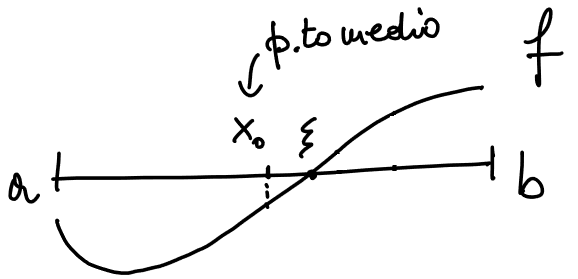 p.to medio
f
x₀ ξ
a b